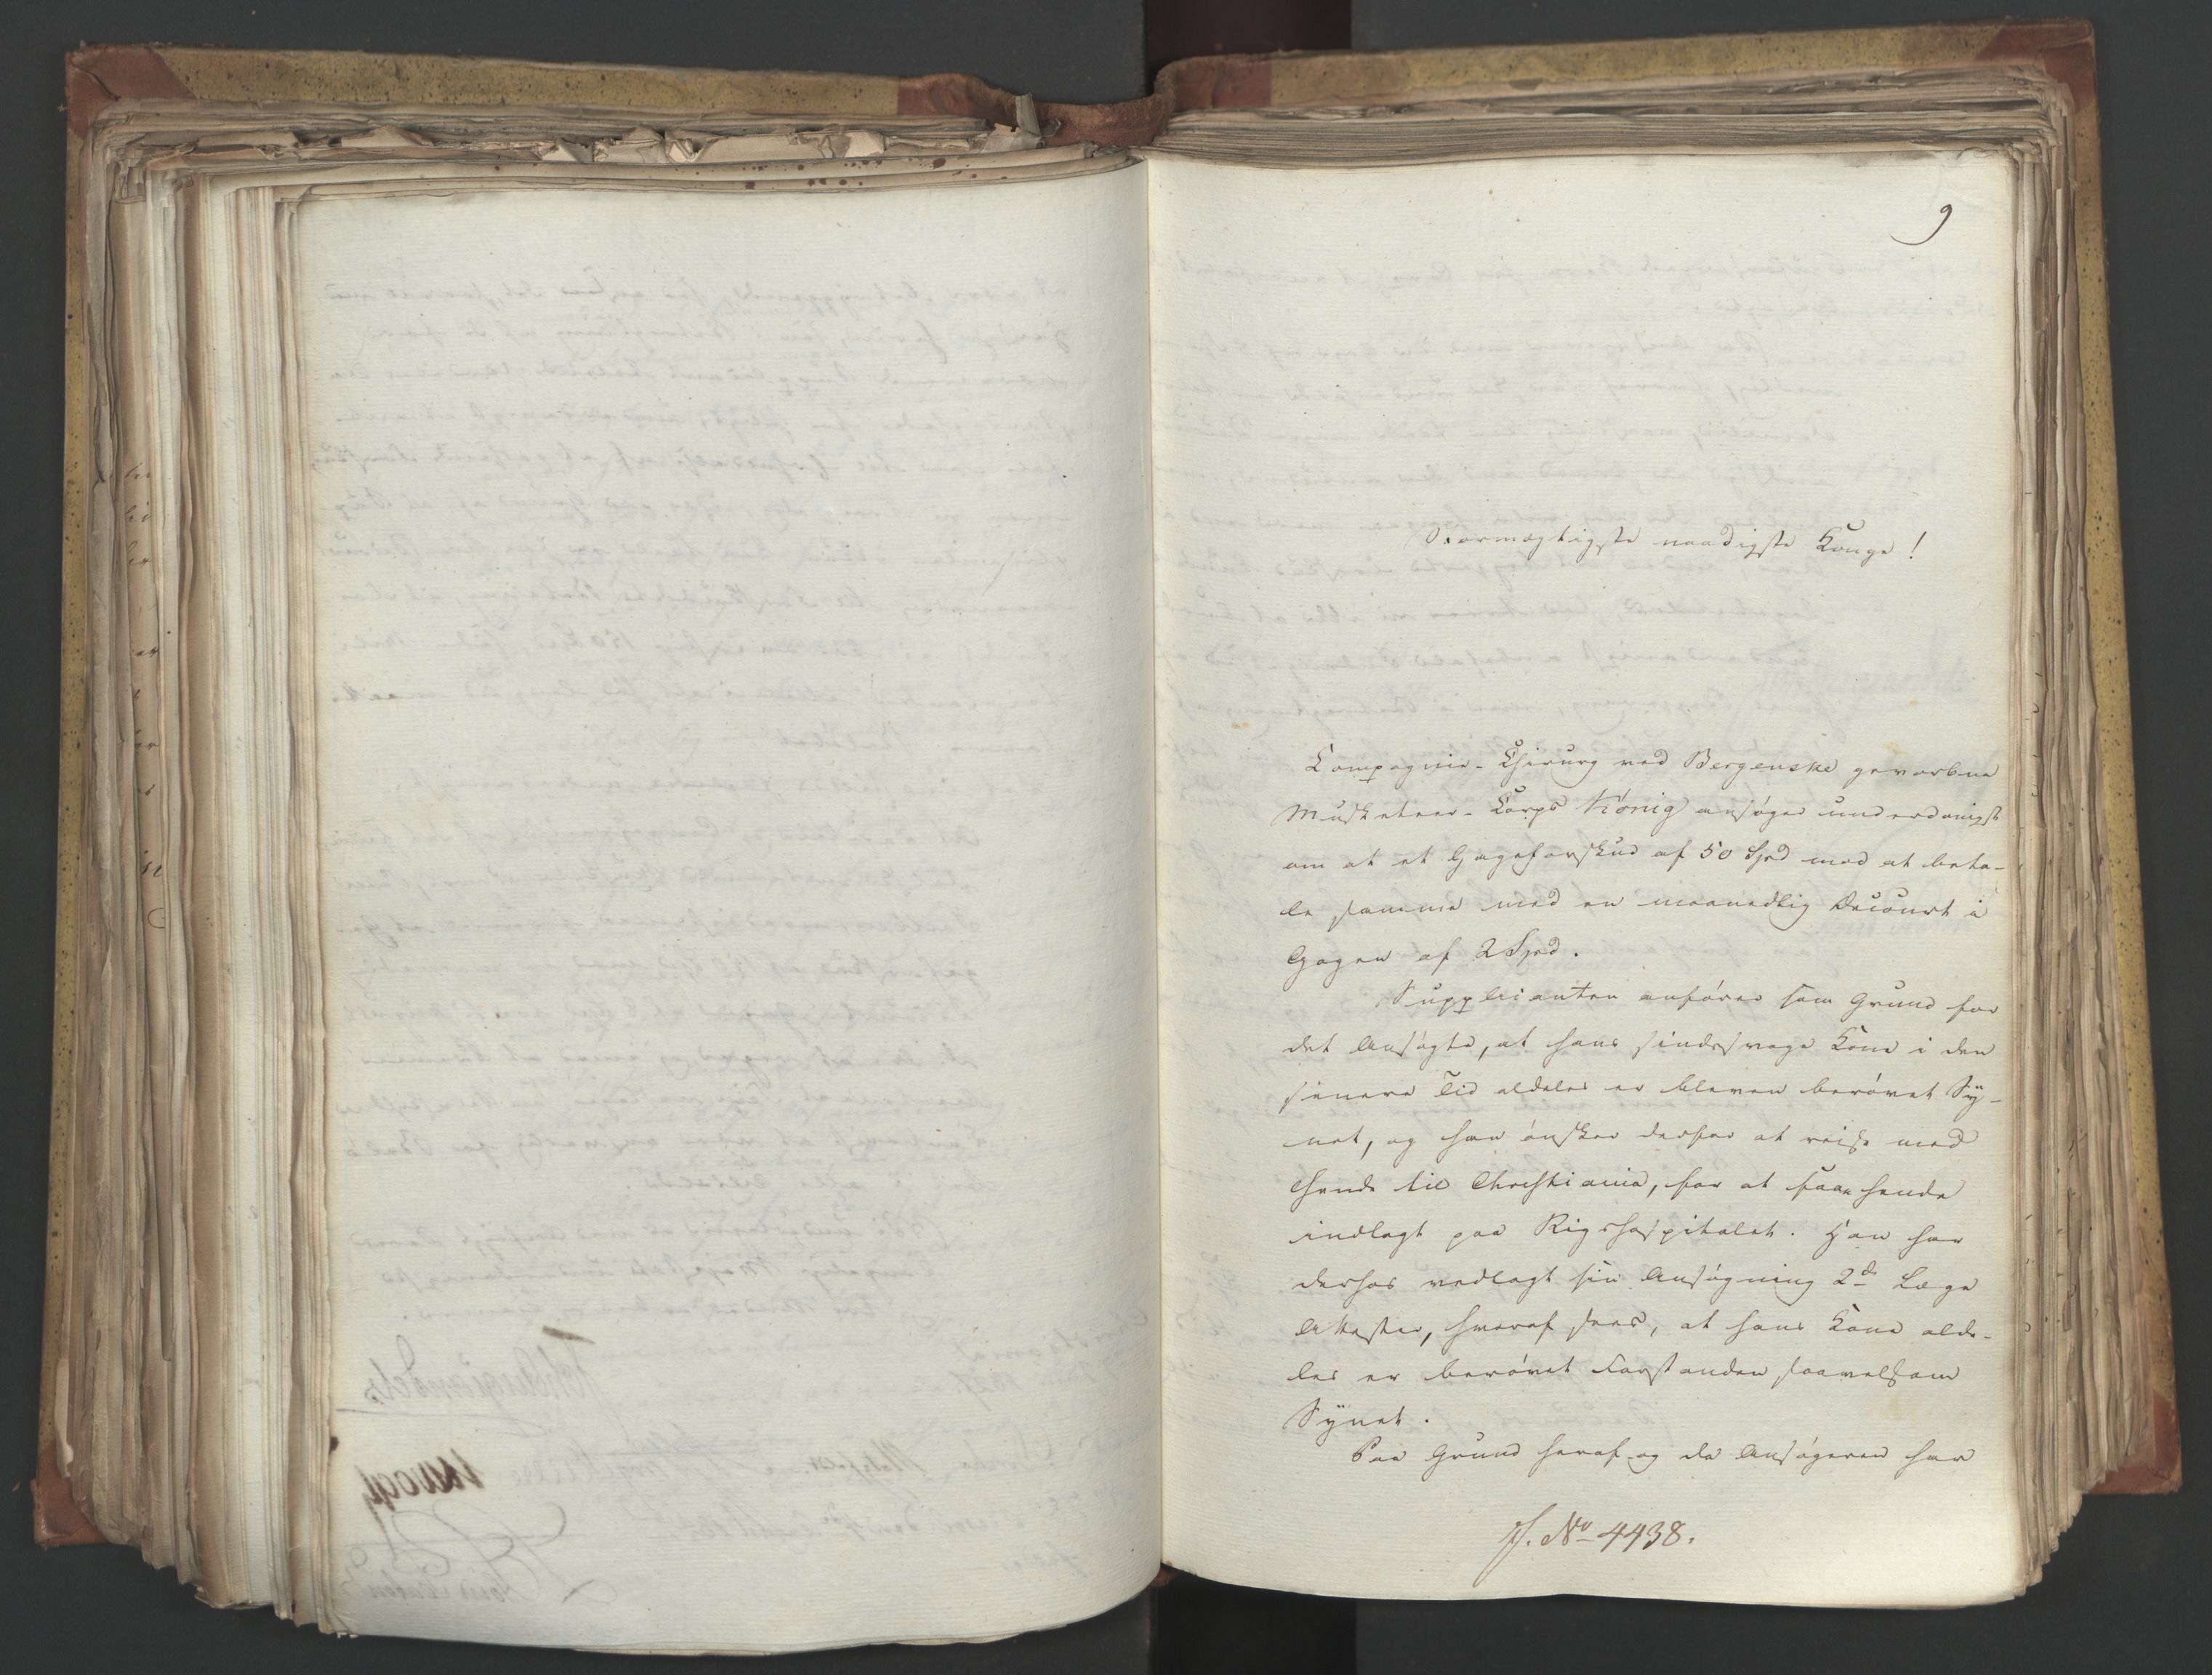 9
Stormægtigste naadigste Konge!
Compagnie-Chirurg ved Bergenske gevorbne
Musketeer-Corps König ansøger underdanigst
om at et Gageforskud af 50 Spd mod at beta-
le samme med en maanedlig Decourt i
Gagen af 2 Spd.
Supplicanten anfører som Grund for
det Ansøgte, at hans sindssvage Kone i den
senere Tid aldeles er bleven berøvet Sÿ-
net, og han ønsker derfor at reise med
hende til Christiania, for at faae hende
indlagt paa Rigshospitalet. Han har
derhos vedlagt sin Ansøgning 2de Læge
Attester, hvoraf sees, at hans Kone alde-
les er berøvet Forstanden saavelsom
Sÿnet.
Paa Grund heraf og da Ansøgeren har
J. No 4438.